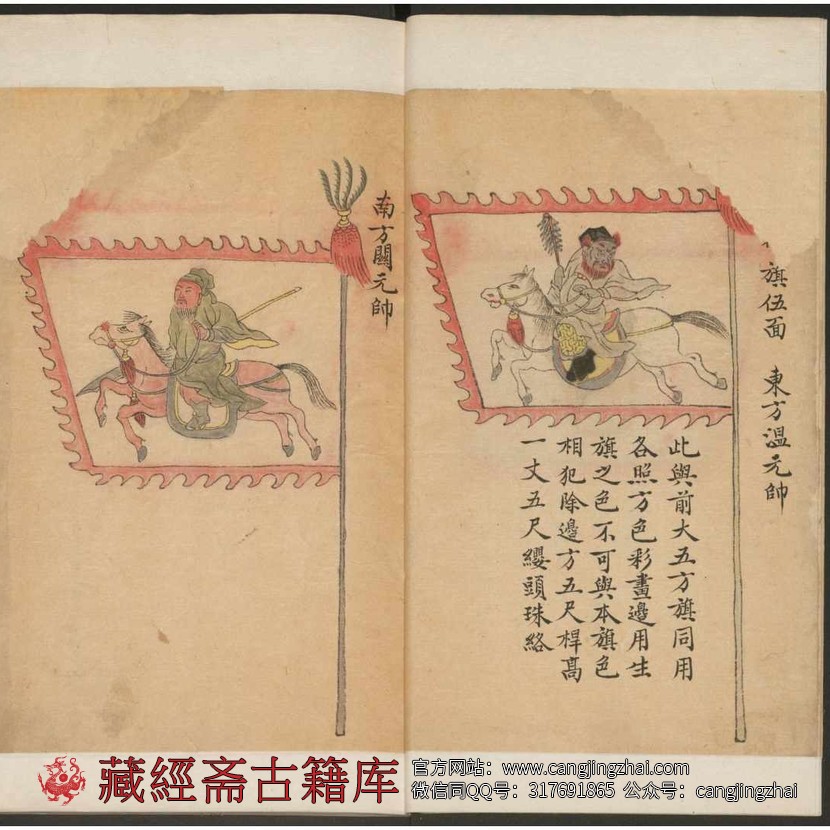 旗伍面　東方溫元帥
此與前大五方旗同用
各照方色彩畫邊用生
旗之色不可與本旗色
相犯除邊方五尺桿高
一丈五尺纓頭珠絡
南方關元帥
藏經斋古籍库
官方网站：www.cangjingzhai.com
微信同QQ号：317691865 公众号：cangjingzhai